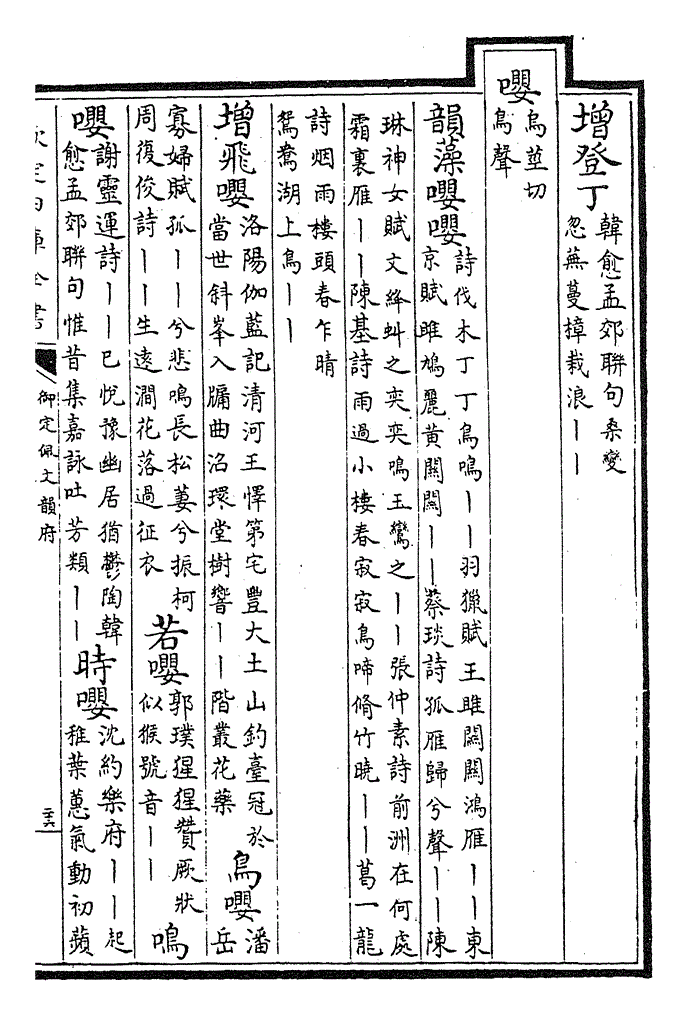 增登丁韓愈孟郊聯句桑變
忽蕪蔓樟栽浪丨丨
嚶烏莖切
鳥聲
韻藻嚶嚶詩伐木丁丁鳥鳴丨丨羽獵賦王雎關關鴻雁丨丨東
京賦雎鳩麗黃關關丨丨蔡琰詩孤雁歸兮聲丨丨陳
琳神女賦文絳虯之奕奕鳴玉鸞之丨丨張仲素詩前洲在何處
霜裏雁丨丨陳基詩雨過小樓春寂寂鳥啼脩竹曉丨丨葛一龍
詩烟雨樓頭春乍晴
鴛鴦湖上鳥丨丨
增飛嚶洛陽伽藍記清河王懌第宅豐大土山釣臺冠於
當世斜峯入牖曲沼環堂樹響丨丨階叢花藥
鳥嚶潘岳
寡婦賦孤丨丨兮悲鳴長松萋兮振柯
周復俊詩丨丨生遠澗花落過征衣
若嚶郭璞猩猩贊厥狀
似猴號音丨丨
鳴嚶謝靈運詩丨丨已悅豫幽居猶鬱陶韓
愈孟郊聯句惟昔集嘉詠吐芳類丨丨
時嚶沈約樂府丨丨起
稚葉蕙氣動初蘋
欽定四庫全書
御定佩文韻府
二十六